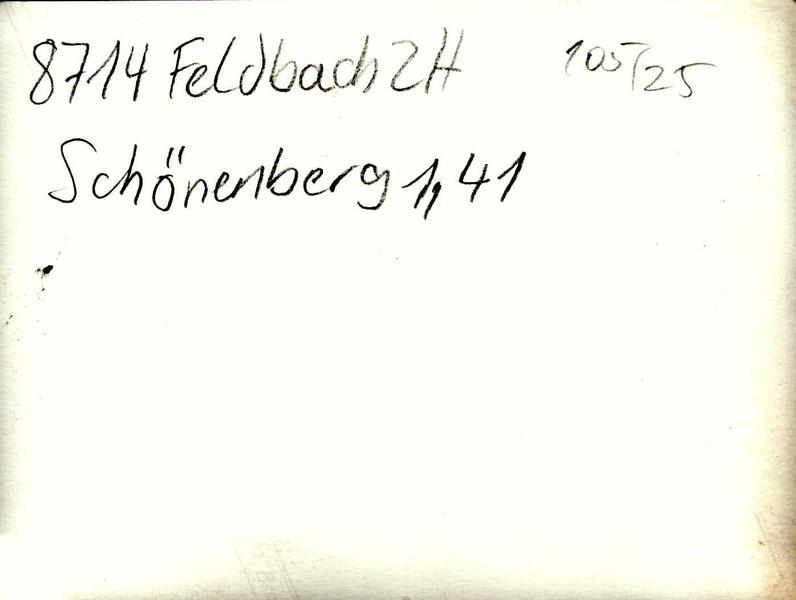 8714 Feldbach ZH 105/25
Schönenberg 1, 41